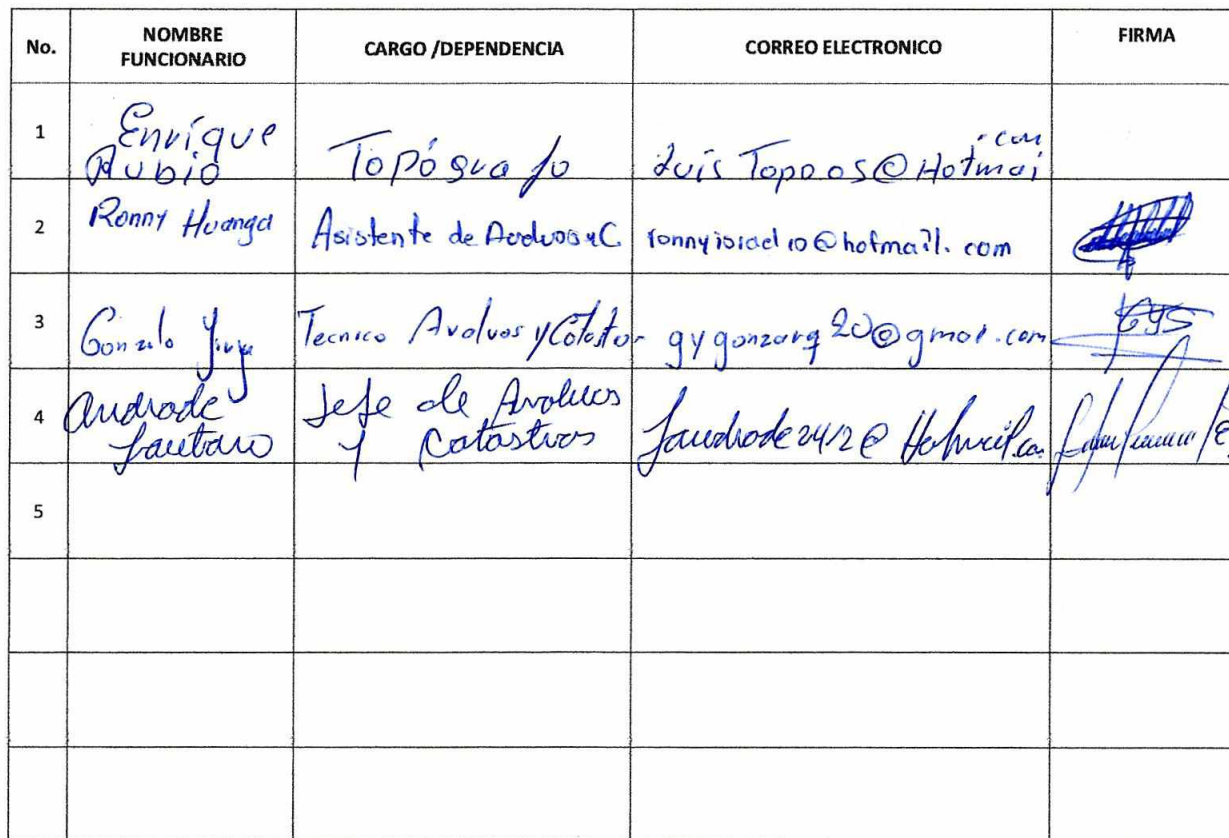 No.
NOMBRE FUNCIONARIO
CARGO /DEPENDENCIA
CORREO ELECTRONICO
FIRMA
1
Enrique
Rubio
Topógrafo
.com
Luis Topo os@Hotmai
2
Ronny Huanga
Asistente de Avaluos y C.
ronnyisrael10@hotmail.com
3
Gonzalo
Tecnico Avaluos y Catastro
gygonzarq20@gmal.com
4
Andrade
Lautaro
Jefe de Avaluos
y Catastros
landrade2412@Hotmail.com
5